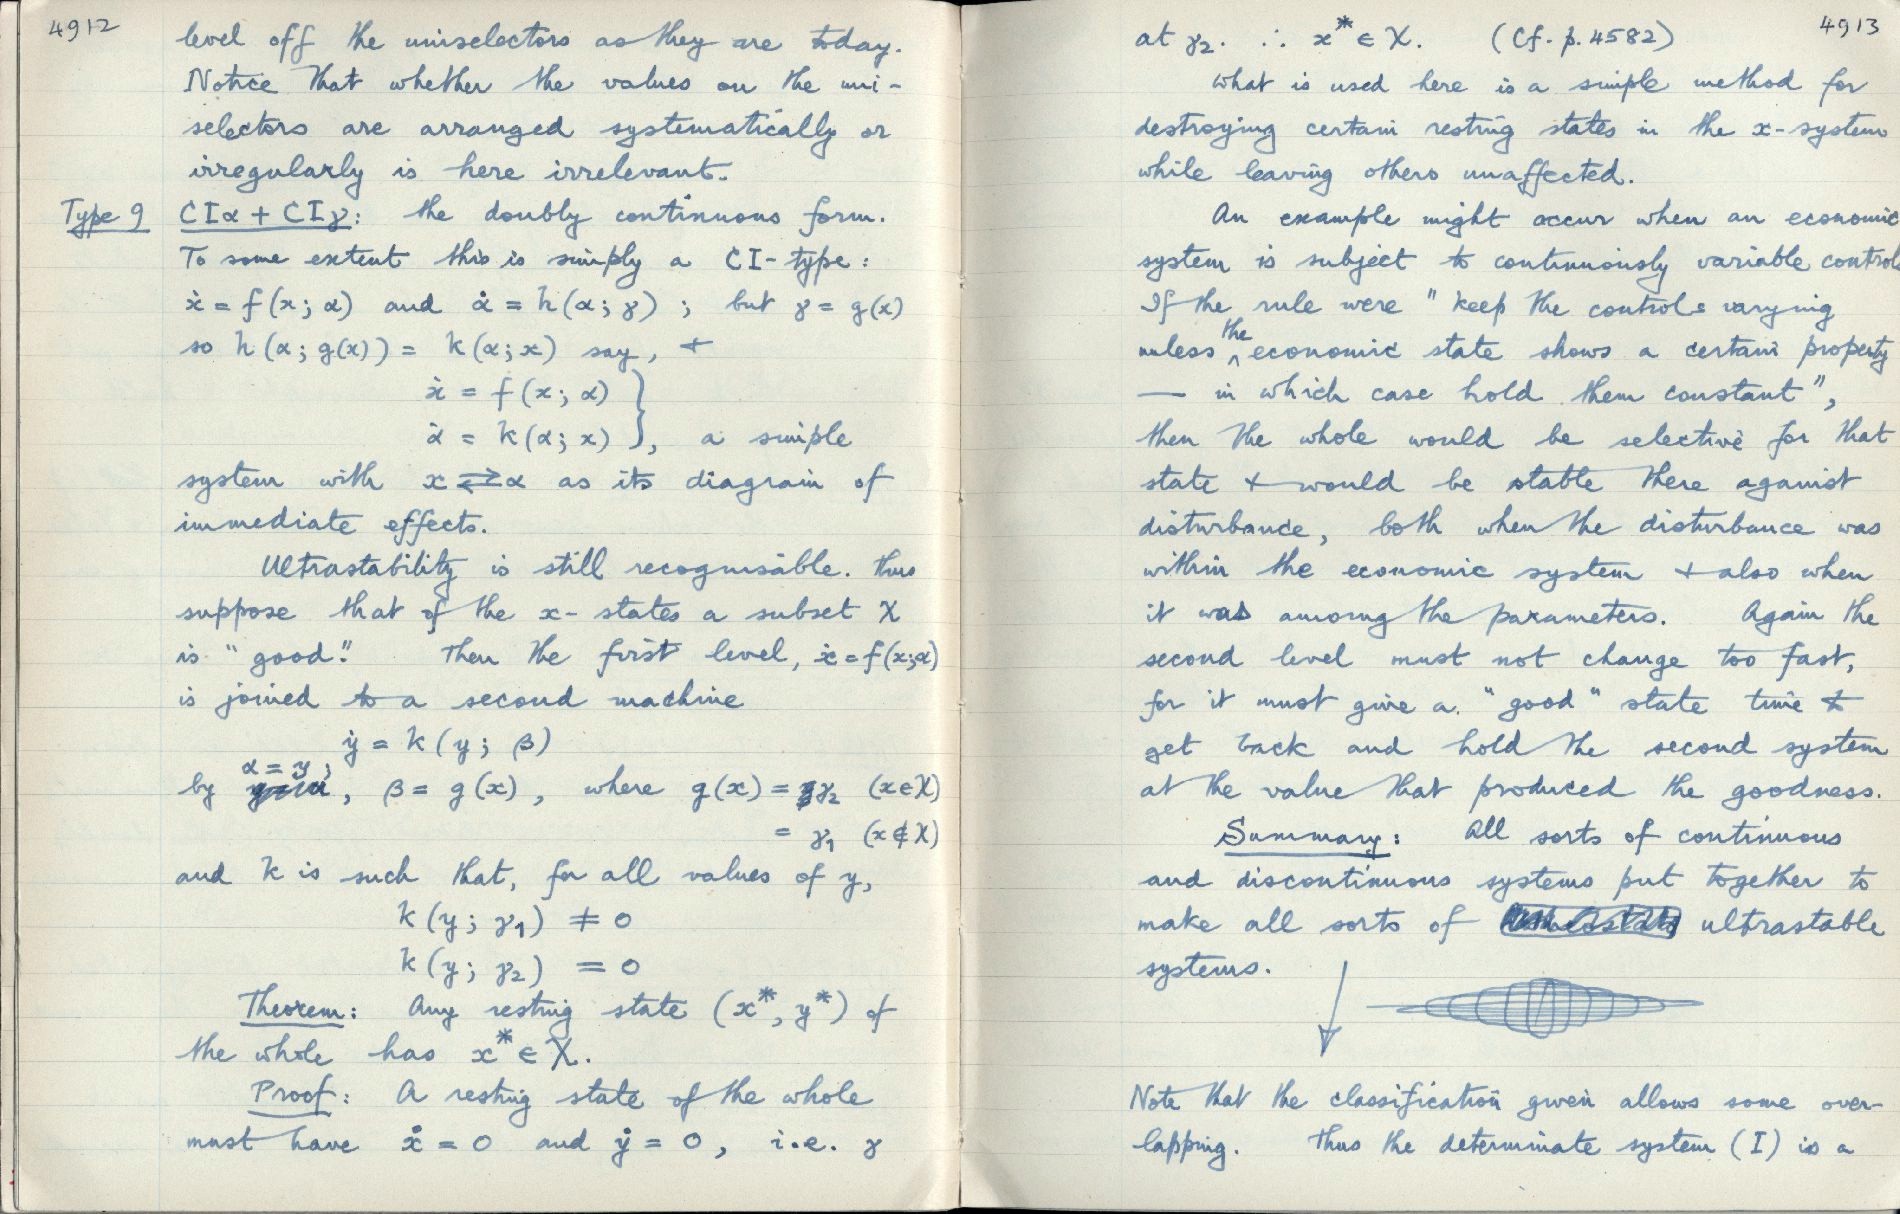 4912
level off the uniselectors as they are today.
Notice that whether the values on the uni-
selectors are arranged systematically or
irregularly is here irrelevant.
Type 9 CIα + CIγ: the doubly continuous form.
To some extent this is simply a CI-type:
ẋ = f(x; α) and α̇ = h(α; γ) ; but γ = g(x)
so h(α; g(x)) = k(α; x) say, +
ẋ = f(x; α) }
α̇ = k(α; x) }, a simple
system with x ⇄ α as its diagram of
immediate effects.
Ultrastability is still recognisable. Thus
suppose that of the x-states a subset X
is "good". Then the first level, ẋ = f(x;α)
is joined to a second machine
ẏ = k(y; β)
α = y;
by , β = g(x), where g(x) = γ₂ (x∈X)
= γ₁ (x∉X)
and k is such that, for all values of y,
k(y; γ₁) ≠ 0
k(y; γ₂) = 0
Theorem: Any resting state (x*, y*) of
the whole has x* ∈ X.
Proof: A resting state of the whole
must have ẋ = 0 and ẏ = 0, i.e. γ
4913
at γ₂. ∴ x* ∈ X. (Cf. p. 4582)
What is used here is a simple method for
destroying certain resting states in the x-system
while leaving others unaffected.
An example might occur when an economic
system is subject to continuously variable control.
If the rule were "keep the controls varying
unless the economic state shows a certain property
— in which case hold them constant",
then the whole would be selective for that
state + would be stable there against
disturbance, both when the disturbance was
within the economic system + also when
it was among the parameters. Again the
second level must not change too fast,
for it must give a "good" state time to
get back and hold the second system
at the value that produced the goodness.
Summary: All sorts of continuous
and discontinuous systems put together to
make all sorts of ultrastable
systems.
Note that the classification given allows some over-
lapping. Thus the determinate system (I) is a